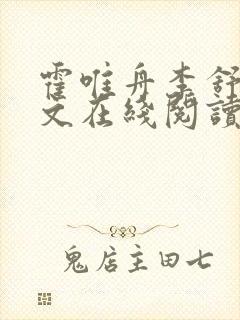 霍唯舟李舒
文在綫閱讀
鬼店主田七